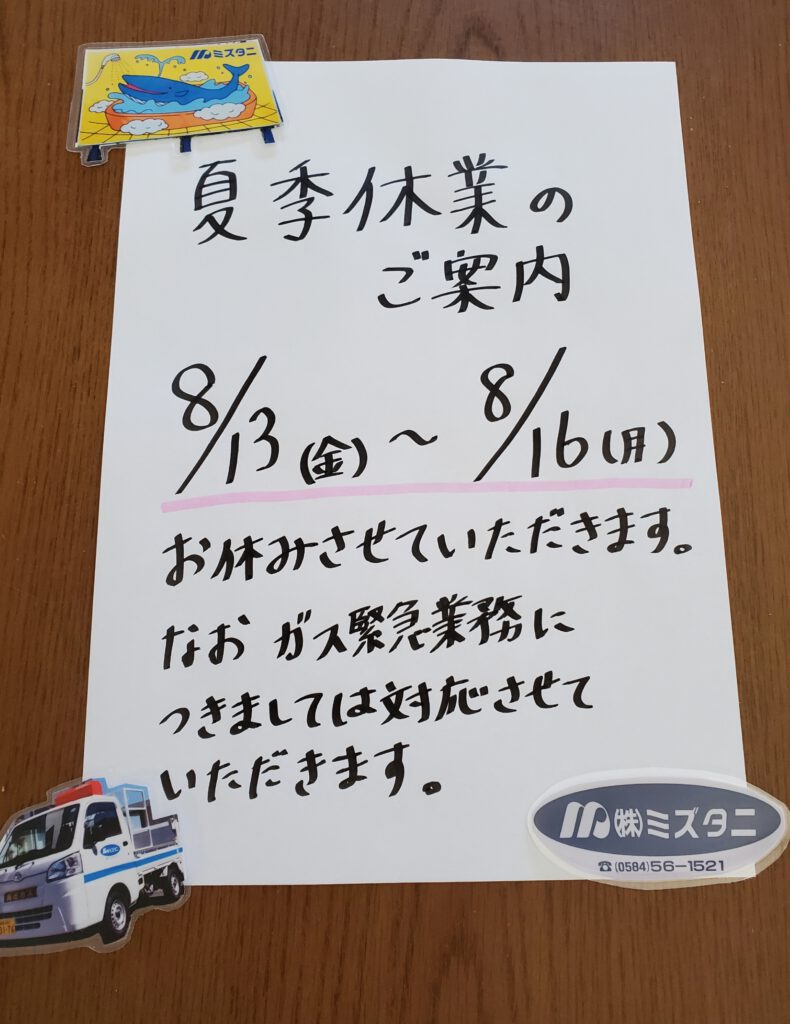 ミズタニ
夏季休業の
ご案内
8/13(金)～8/16(月)
お休みさせていただきます。
なお ガス緊急業務に
つきましては対応させて
いただきます。
㈱ミズタニ
☎(0584)56-1521